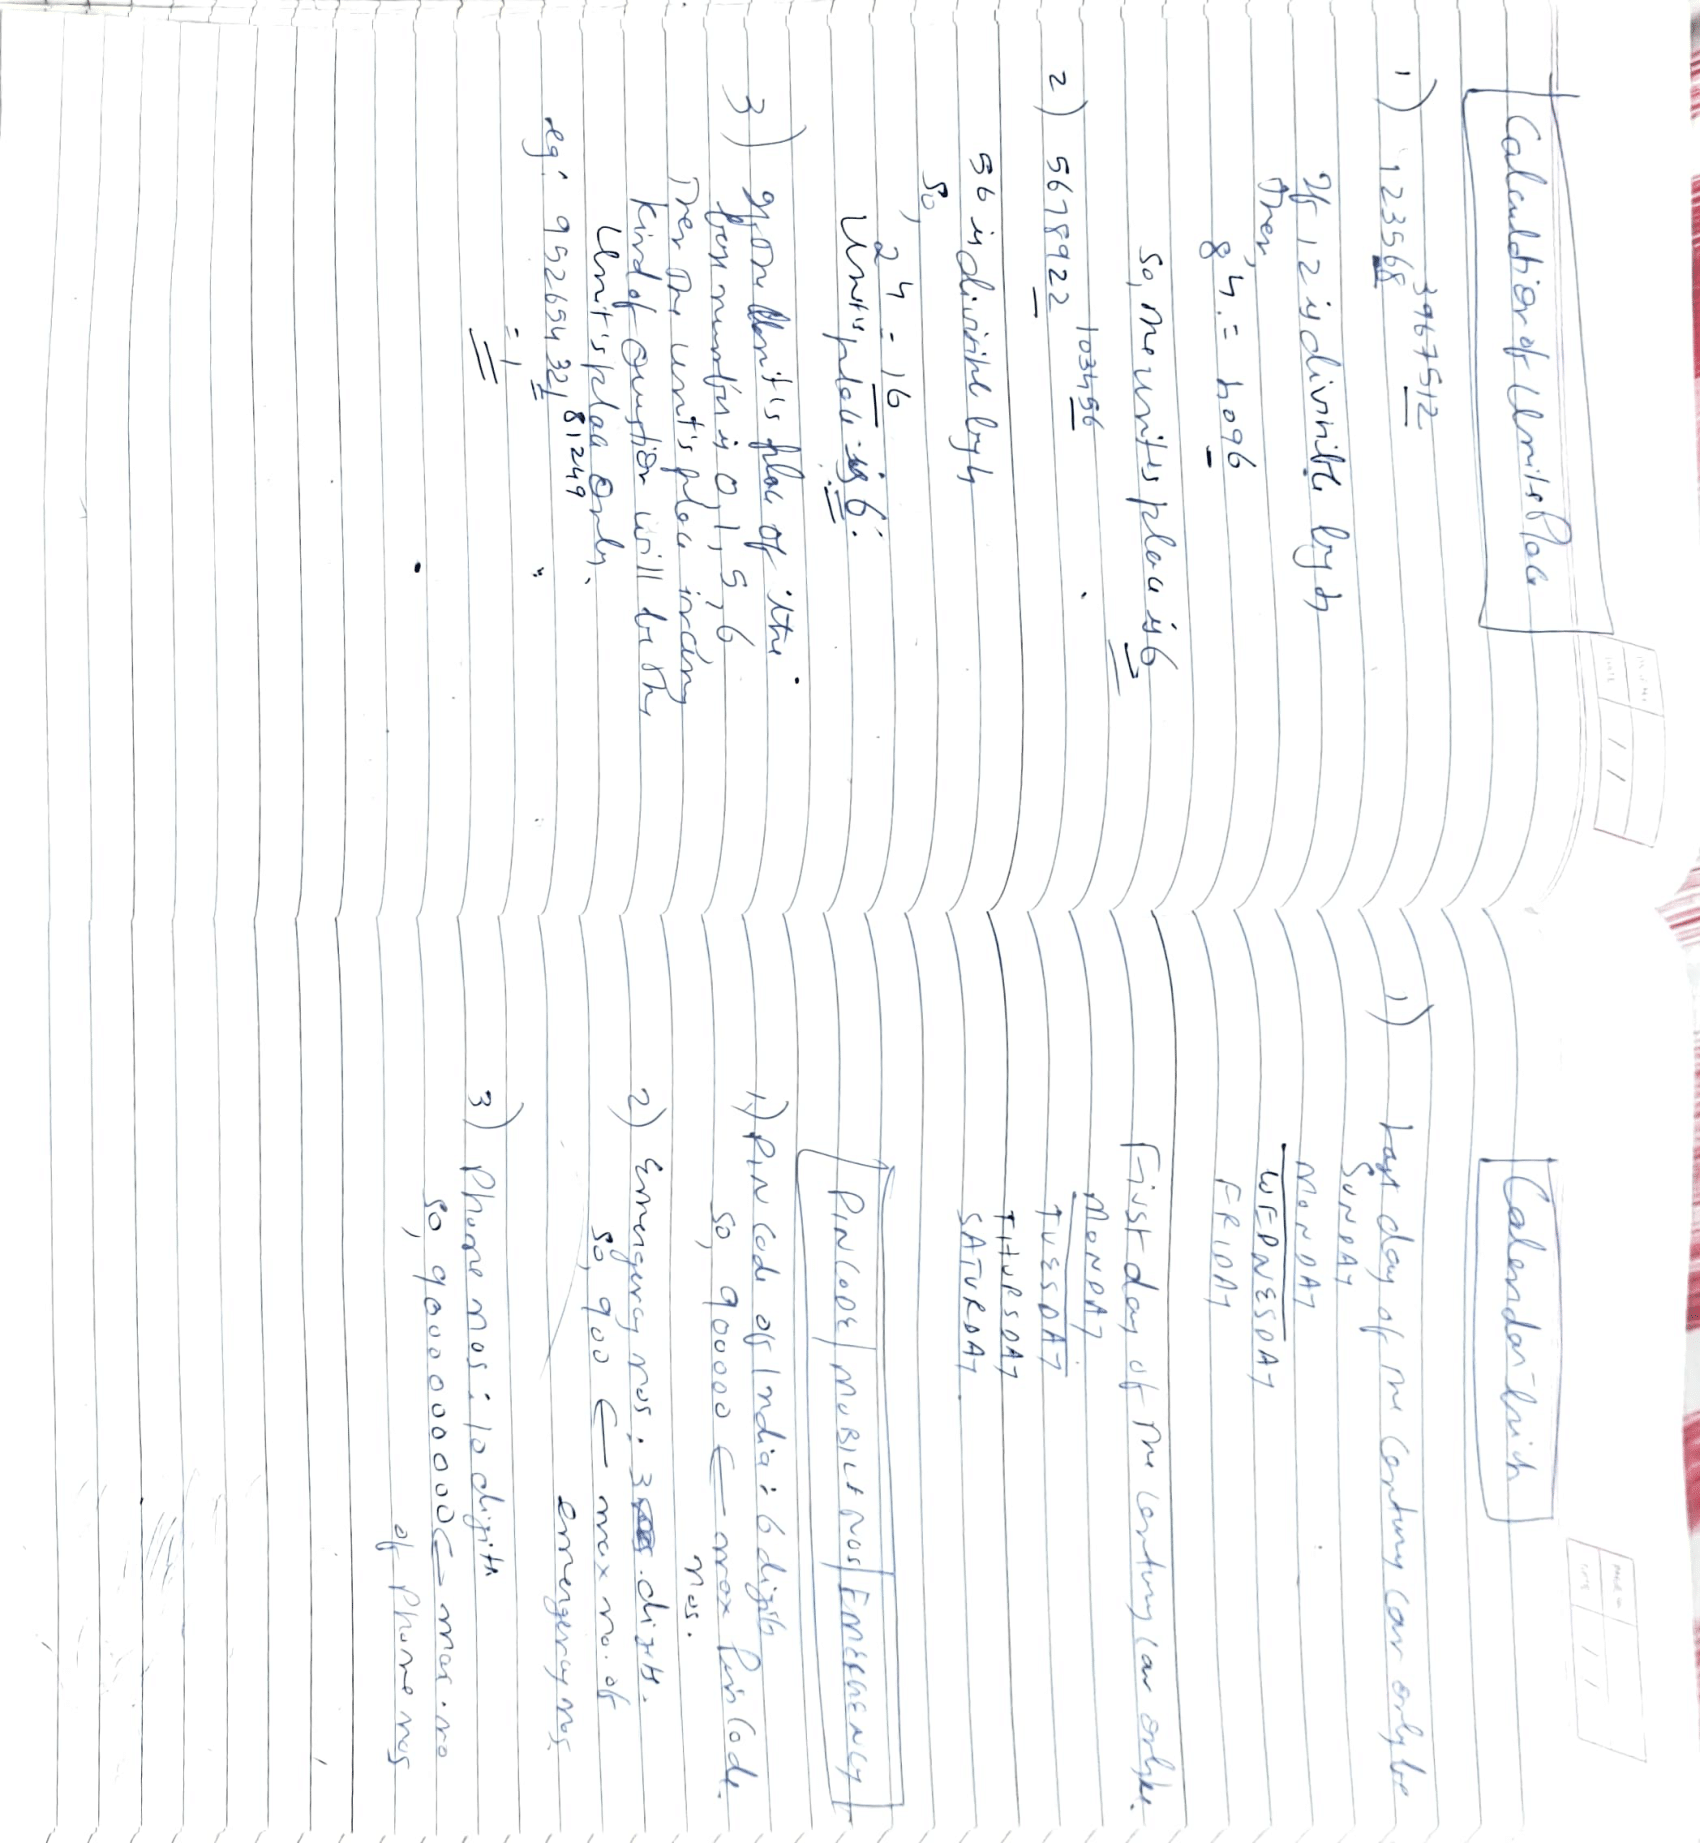 Calculation of Unit's Place
1) 123568^3967512
If 12 is divisible by 4
then,
8^4 = 4096
So, the unit's place is 6
2) 5678922^103456
56 is divisible by 4
so,
2^4 = 16
Unit's place is 6.
3) If the Unit's place of the
number is 0, 1, 5, 6
Then the unit's place in any
kind of Question will be the
Unit's place Only.
eg: 952694321^81249
= 1
Calendar Trick
1) Last day of the Century can only be
SUNDAY
MONDAY
WEDNESDAY
FRIDAY
First day of the century can only be.
MONDAY
TUESDAY
THURSDAY
SATURDAY
PINCODE/MOBILE NOS/EMERGENCY
1) PIN Code of India: 6 digits
So, 900000 ← max Pin Code
nos.
2) Emergency nos: 3 digits.
So, 900 ← max no. of
emergency nos.
3) Phone nos: 10 digits
So, 9000000000 ← max. no
of Phone nos